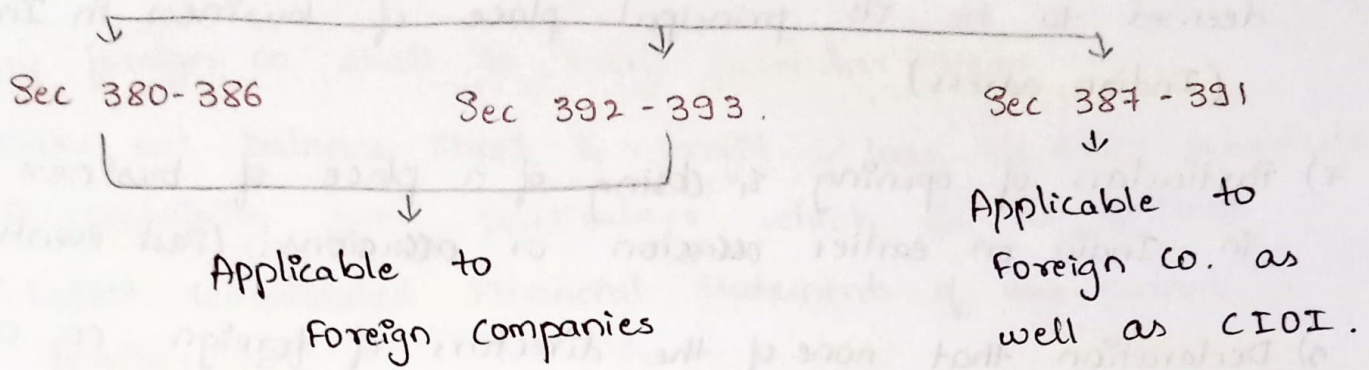 Sec 380-386
Sec 392-393.
Sec 387-391
Applicable to
Foreign companies
Applicable to
Foreign co. as
well as CIOI.